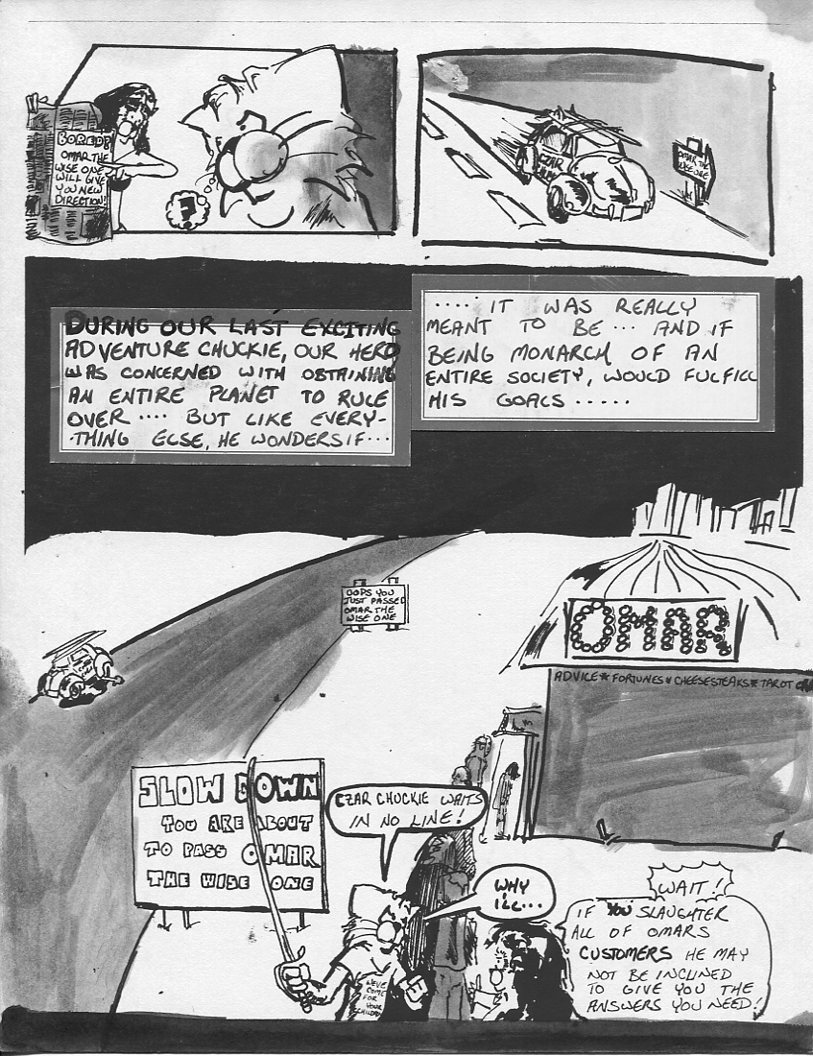 BORED?
OMAR THE
WISE ONE
WILL GIVE
YOU NEW
DIRECTION!
CZAR
OMAR THE
WISE ONE
DURING OUR LAST EXCITING
ADVENTURE CHUCKIE, OUR HERO
WAS CONCERNED WITH OBTAINING
AN ENTIRE PLANET TO RULE
OVER .... BUT LIKE EVERY-
-THING ELSE, HE WONDERS IF...
..... IT WAS REALLY
MEANT TO BE ... AND IF
BEING MONARCH OF AN
ENTIRE SOCIETY, WOULD FULFILL
HIS GOALS .....
OOPS YOU
JUST PASSED
OMAR THE
WISE ONE
OMAR
ADVICE * FORTUNES * CHEESESTEAKS * TAROT
SLOW DOWN
YOU ARE ABOUT
TO PASS OMAR
THE WISE ONE
CZAR CHUCKIE WAITS
IN NO LINE!
WHY
I'LL...
WAIT!
IF YOU SLAUGHTER
ALL OF OMARS
CUSTOMERS HE MAY
NOT BE INCLINED
TO GIVE YOU THE
ANSWERS YOU NEED!
WE'VE
COME
FOR
YOUR
CHILDREN